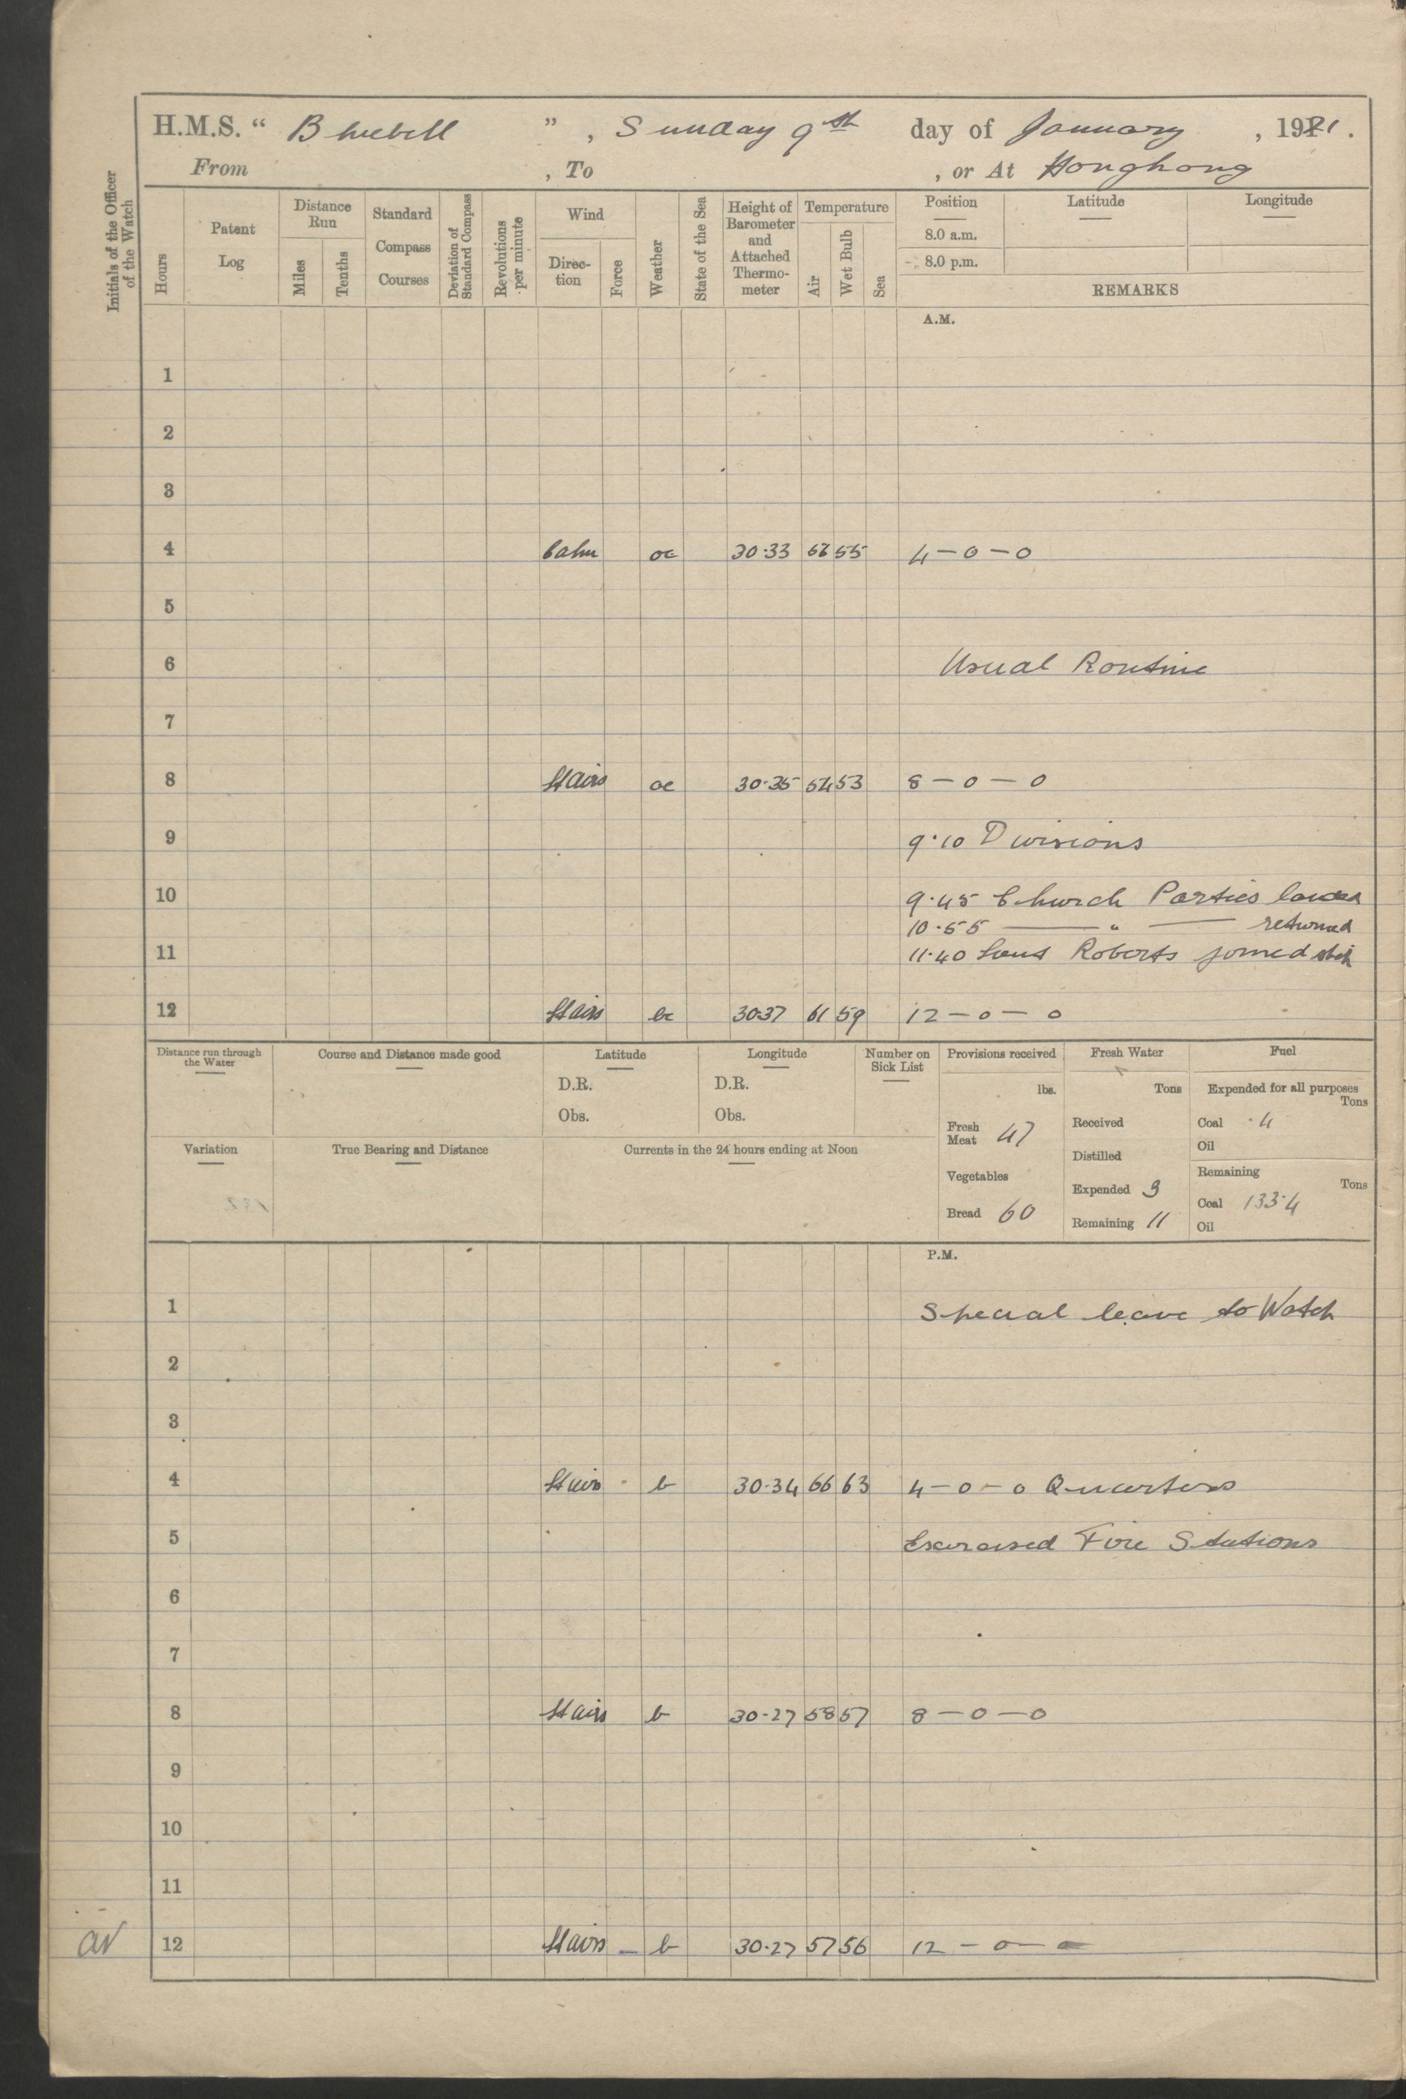 H.M.S. “ Bluebell ” , Sunday 9th day of January , 1921 .
From , To , or At Hongkong
Initials of the Officer of the Watch
Hours
Patent Log
Distance Run
Miles
Tenths
Standard Compass Courses
Deviation of Standard Compass
Revolutions per minute
Wind
Direc-tion
Force
Weather
State of the Sea
Height of Barometer and Attached Thermo-meter
Temperature
Air
Wet Bulb
Sea
Position
Latitude
Longitude
8.0 a.m.
8.0 p.m.
REMARKS
A.M.
1
2
3
4 Calm oc 30·33 56 55 4 — 0 — 0
5
6 Usual Routine
7
8 oc 30·35 54 53 8 — 0 — 0
9 9·10 Divisions
10 9·45 Church Parties landed
10·55 —— " —— returned
11 11·40 Lieut Roberts joined ship
12 bc 30·37 61 59 12 — 0 — 0
Distance run through the Water
Course and Distance made good
Latitude
D.R.
Obs.
Longitude
D.R.
Obs.
Number on Sick List
Provisions received
lbs.
Fresh Meat 47
Vegetables
Bread 60
Fresh Water
Tons
Received
Distilled
Expended 3
Remaining 11
Fuel
Expended for all purposes
Tons
Coal ·4
Oil
Remaining
Tons
Coal 133·4
Oil
Variation
True Bearing and Distance
Currents in the 24 hours ending at Noon
P.M.
1 Special leave to Watch
2
3
4 b 30·34 66 63 4 — 0 — 0 Quarters
5 Exercised Fire Stations
6
7
8 b 30·27 58 57 8 — 0 — 0
9
10
11
12 — b 30·27 57 56 12 — 0 — 0